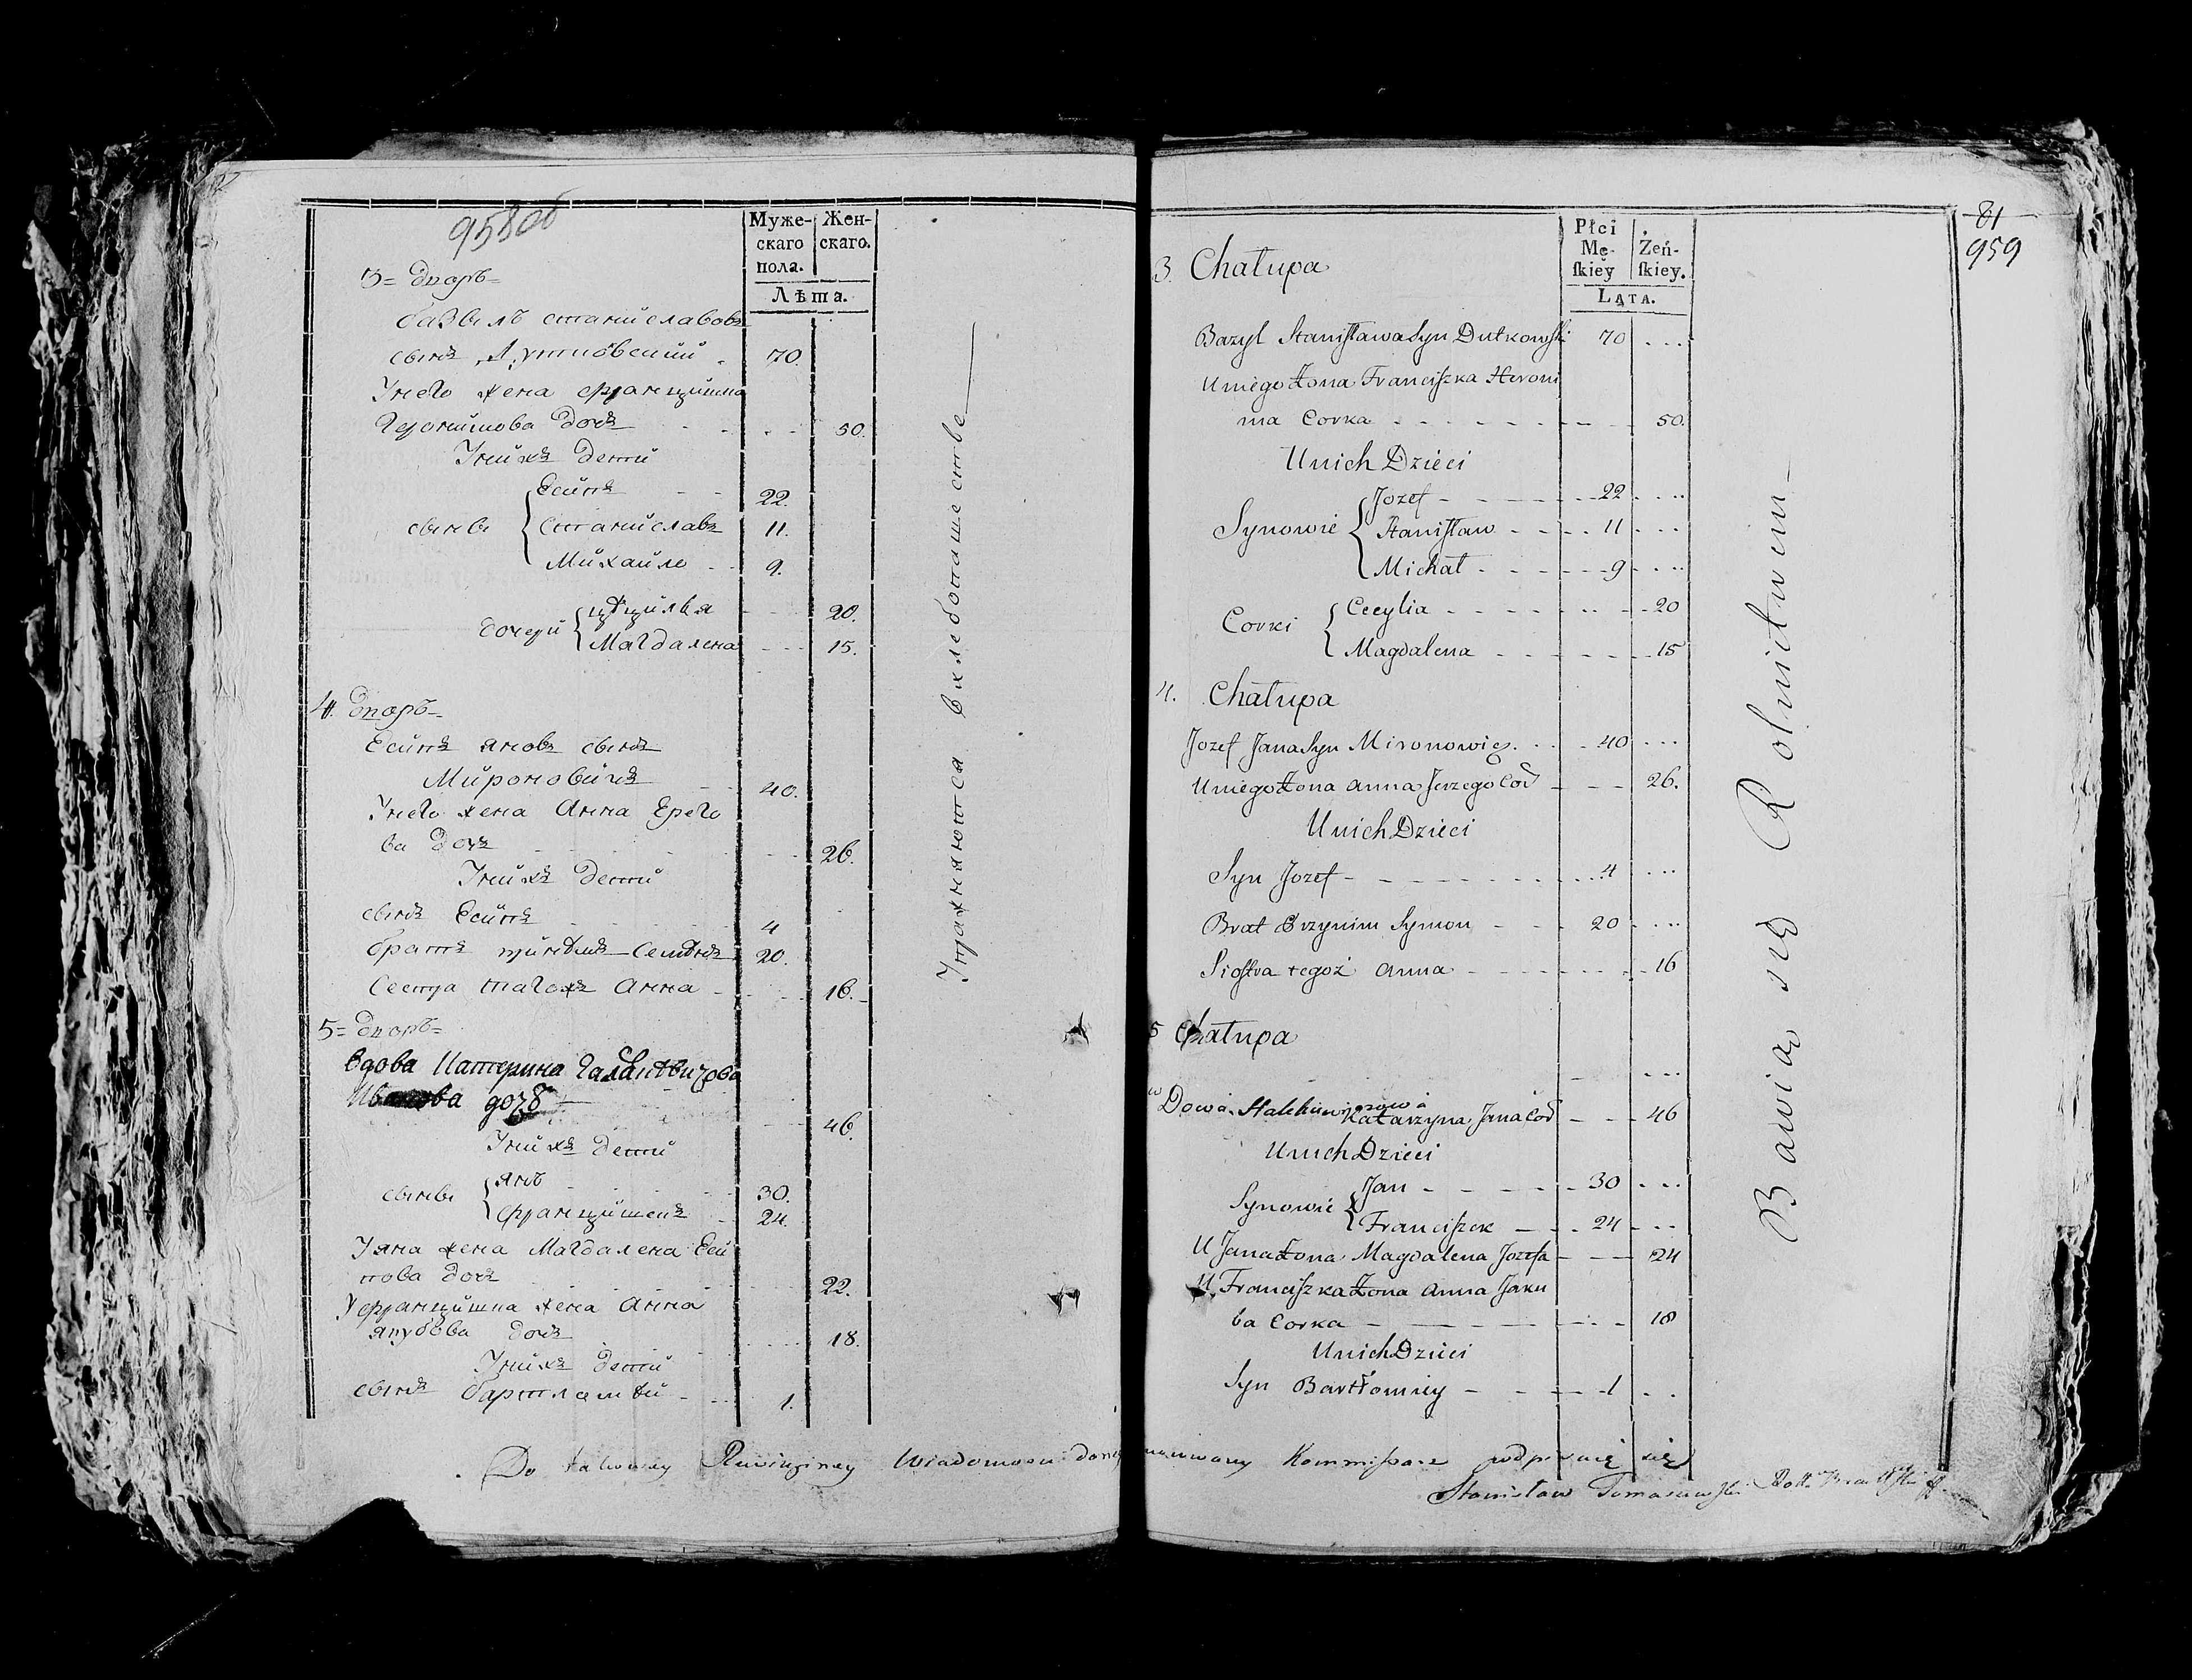 958об
Муже-
скаго
пола.
Жен-
скаго.
Лѣта.
3= Дворъ=
базыль станиславовъ
сынъ Дутковский 70.
Унего жена францишка
Героними­ова дочь 50.
Унихъ дети
сыны Есипъ 22.
Станиславъ 11.
Михайло 9.
дочери цѣцилья 20.
Магдалена 15.
4. Дворъ=
Есипъ яновъ сынъ
Мироновичъ 40.
Унего жена Анна Ерего
ва дочь 26.
Унихъ дети
сынъ Есипъ 4
братъ Семіонъ 20.
Сестра тагожъ Анна 16.
5= Дворъ=
вдова Катерина
дочь 46.
Унихъ дети
сыны янъ 30.
францишекъ 24.
Уяна жена Магдалена Еси
пова дочь 22.
Уфранцишка жена Анна
якубова дочь 18.
Унихъ дети
сынъ бартламѣй 1.
Упражняются в хлебопашестве
81
959
Płci
Mę-
ſkiey
Żeń-
ſkiey.
Lata.
3. Chałupa
Bazyl Staniſława Syn Dutkowſki 70
Uniego Żona Franciſzka Heroni
ma Corka 50.
Unich Dzieci
Synowie Jozef 22
Staniſław 11
Michał 9
Corki Cecylia 20
Magdalena 15
4. Chałupa
Jozef Jana Syn Mironowicz 40
Uniego Żona Anna Jerzego Cor 26.
Unich Dzieci
Syn Jozef 4
Brat Przynim Symon 20
Sioſtra tegoż Anna 16
5 Chałupa
wDowa Katarzyna Jana Cor 46
Unich Dzieci
Synowie Jan 30
Franciſzek 24
U Jana Żona Magdalena Jozefa 24
U Franciſzka Żona Anna Jaku
ba Corka 18
Unich Dzieci
Syn Bartłomiey 1
Bawią się Rolnictwem
Do takowey Rewizyiney Wiadomosci Kommiſsarz podpisuię się
Stanisław Tomaszewſki